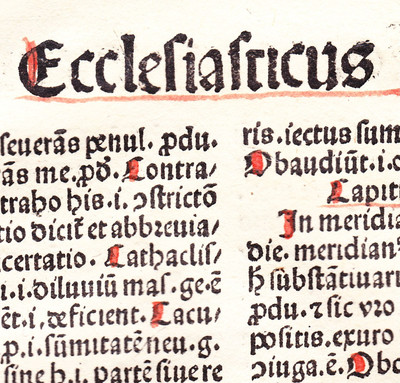 Ecclesiasticus
seuerãs penul. ꝓdu.
ãs me. ꝓð. Contra/
traho his .i. ↄstrictõ
tio dicit̃ et abbreuia/
certatio. Cathaclis/
.i. diluuiũ mas. ge. ẽ
ẽt .i. deficient. Lacu/
p .i. sũmitatẽ neu. g.
sine h .i. partẽ siue re
ris. iectus sum
Obaudiũt .i. o
Capit
In meridia
die. meridian⁹
h̃ substãtiuari
ꝓdu. ⁊ sic vro
positis. exuro
ↄiuga. ẽ. Obo